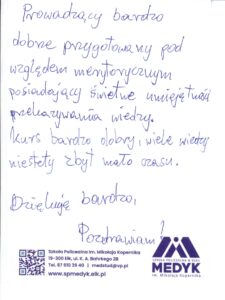 Prowadzący bardzo
dobrze przygotowany pod
względem merytorycznym
posiadający świetne umiejętności
przekazywania wiedzy.
Kurs bardzo dobry, wiele wiedzy
niestety zbyt mało czasu.
Dziękuję bardzo,
Pozdrawiam!
Szkoła Policealna im. Mikołaja Kopernika
19-300 Ełk, ul. K. A. Bahrkego 2B
Tel. 87 610 39 40 | medstud@vp.pl
www.spmedyk.elk.pl
SZKOŁA POLICEALNA W EŁKU
MEDYK
im. Mikołaja Kopernika